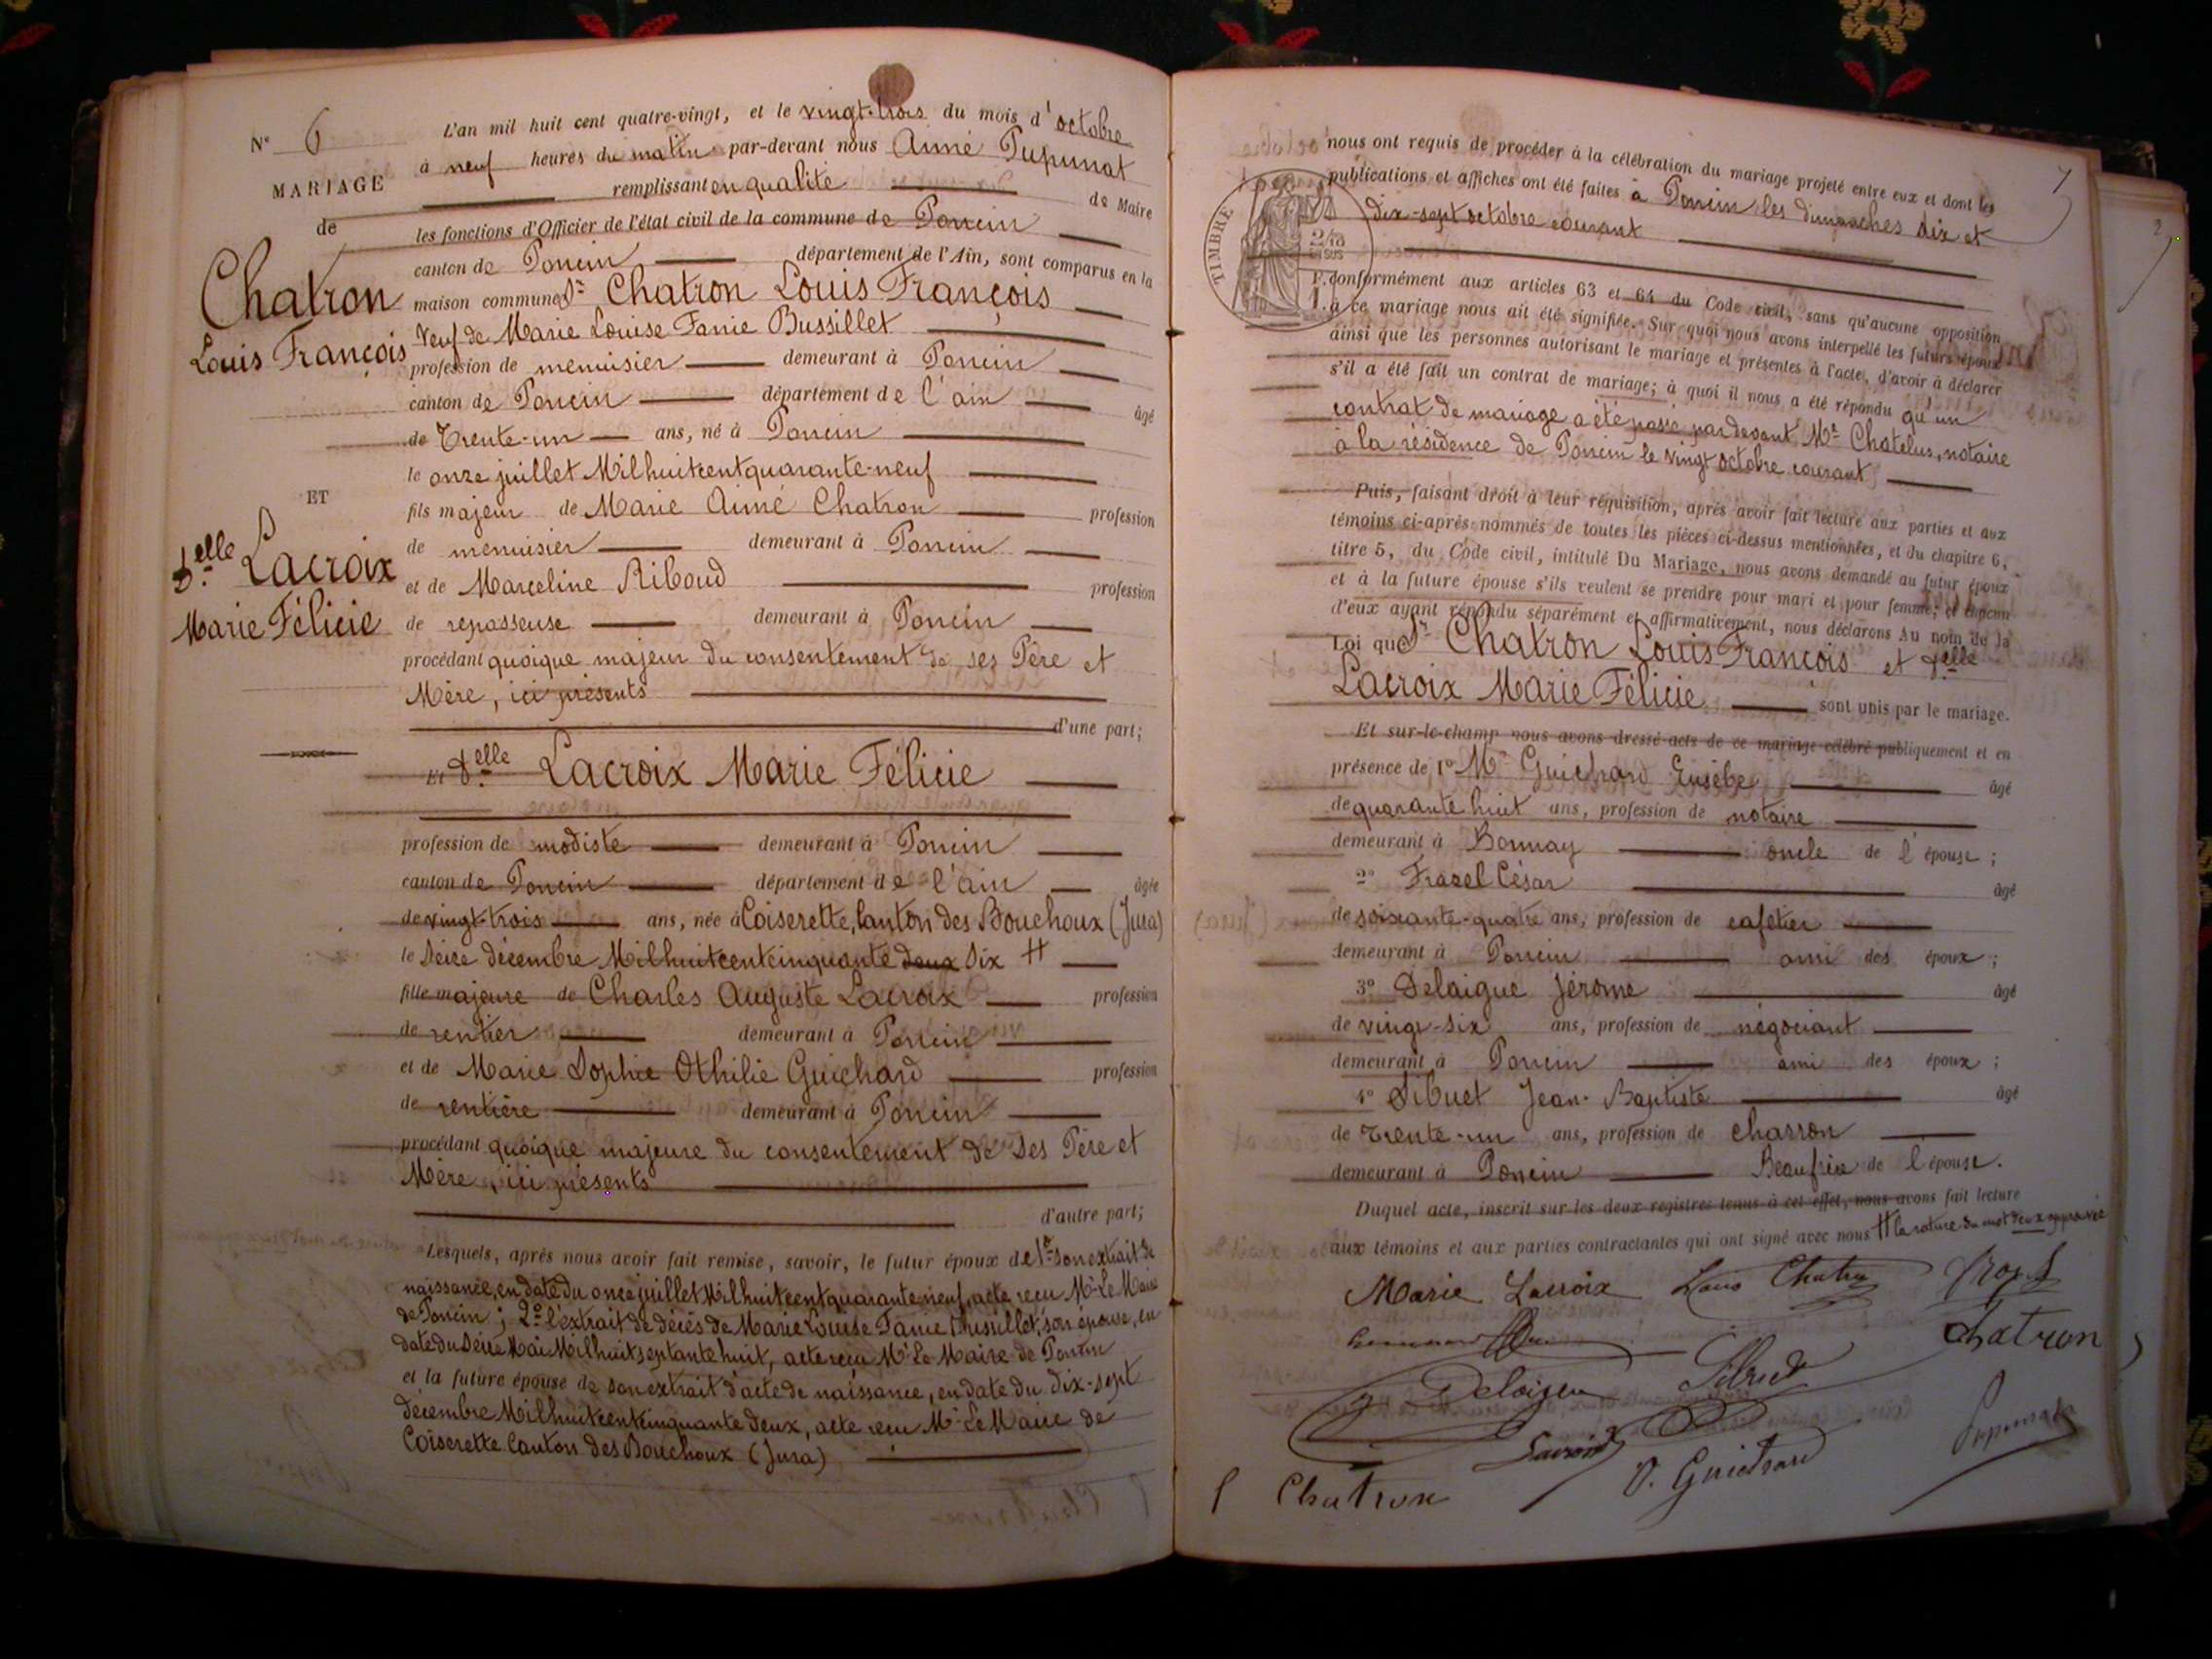 N° 6
MARIAGE
de
Chatron
Louis François
ET
D.elle Lacroix
Marie Félicie
L'an mil huit cent quatre-vingt, et le vingt-trois du mois d'octobre
à neuf heures du matin par-devant nous Aimé Pupunat
remplissant en qualité de Maire
les fonctions d'Officier de l'état civil de la commune de Poncin
canton de Poncin département de l'Ain, sont comparus en la
maison commune Sr Chatron Louis François
Veuf de Marie Louise Fanie Bussillet
profession de menuisier demeurant à Poncin
canton de Poncin département de l'ain âgé
de Trente-un ans, né à Poncin
le onze juillet Milhuitcentquarante-neuf
fils majeur de Marie Aimé Chatron profession
de menuisier demeurant à Poncin
et de Marceline Riboud profession
de repasseuse demeurant à Poncin
procédant quoique majeur du consentement de ses Père et
Mère, ici présents
d'une part;
Et D.elle Lacroix Marie Félicie
profession de modiste demeurant à Poncin
canton de Poncin département de l'ain âgée
de vingt-trois ans, née à Coiserette, Canton des Bouchoux (Jura)
le Seize décembre Milhuitcentcinquante deux Six #
fille majeure de Charles Auguste Lacroix profession
de rentier demeurant à Poncin
et de Marie Sophie Othilie Guichard profession
de rentière demeurant à Poncin
procédant quoique majeure du consentement de ses Père et
Mère, ici présents
d'autre part;
Lesquels, après nous avoir fait remise, savoir, le futur époux de 1° son extrait de
naissance, en date du onze juillet Milhuitcentquarante neuf, acte reçu Mr Le Maire
de Poncin; 2° l'extrait de décès de Marie Louise Fanie Bussillet, son épouse, en
date du Seize Mai Milhuitseptante huit, acte reçu Mr Le Maire de Poncin
et la future épouse de son extrait d'acte de naissance, en date du dix-sept
décembre Milhuitcentcinquante deux, acte reçu Mr Le Maire de
Coiserette Canton des Bouchoux (Jura)
7
nous ont requis de procéder à la célébration du mariage projeté entre eux et dont les
publications et affiches ont été faites à Poncin les dimanches dix et
dix-sept octobre courant
TIMBRE
conformément aux articles 63 et 64 du Code civil, sans qu'aucune opposition
à ce mariage nous ait été signifiée. Sur quoi nous avons interpellé les futurs époux
ainsi que les personnes autorisant le mariage et présentes à l'acte, d'avoir à déclarer
s'il a été fait un contrat de mariage; à quoi il nous a été répondu qu'un
contrat de mariage a été passé pardevant Me Chatelus, notaire
à la résidence de Poncin le vingt octobre courant
Puis, faisant droit à leur réquisition, après avoir fait lecture aux parties et aux
témoins ci-après nommés de toutes les pièces ci-dessus mentionnées, et du chapitre 6,
titre 5, du Code civil, intitulé Du Mariage, nous avons demandé au futur époux
et à la future épouse s'ils veulent se prendre pour mari et pour femme; et chacun
d'eux ayant répondu séparément et affirmativement, nous déclarons au nom de la
Loi que Sr Chatron Louis François et D.elle
Lacroix Marie Félicie sont unis par le mariage.
Et sur-le-champ nous avons dressé acte de ce mariage célébré publiquement et en
présence de 1° Mr Guichard Eusèbe âgé
de quarante huit ans, profession de notaire
demeurant à Bonnay oncle de l'épouse;
2° Frazel César âgé
de soixante-quatre ans, profession de cafetier
demeurant à Poncin ami des époux;
3° Delaigue Jérome âgé
de vingt-six ans, profession de négociant
demeurant à Poncin ami des époux;
4° Dibuet Jean-Baptiste âgé
de Trente-un ans, profession de charron
demeurant à Poncin Beaufrère de l'épouse.
Duquel acte, inscrit sur les deux registres tenus à cet effet, nous avons fait lecture
aux témoins et aux parties contractantes qui ont signé avec nous # la rature du mot deux approuvée
Marie Lacroix Louis Chatron
Chatron
Lacroix
O. Guichard
Pupunat
Chatron